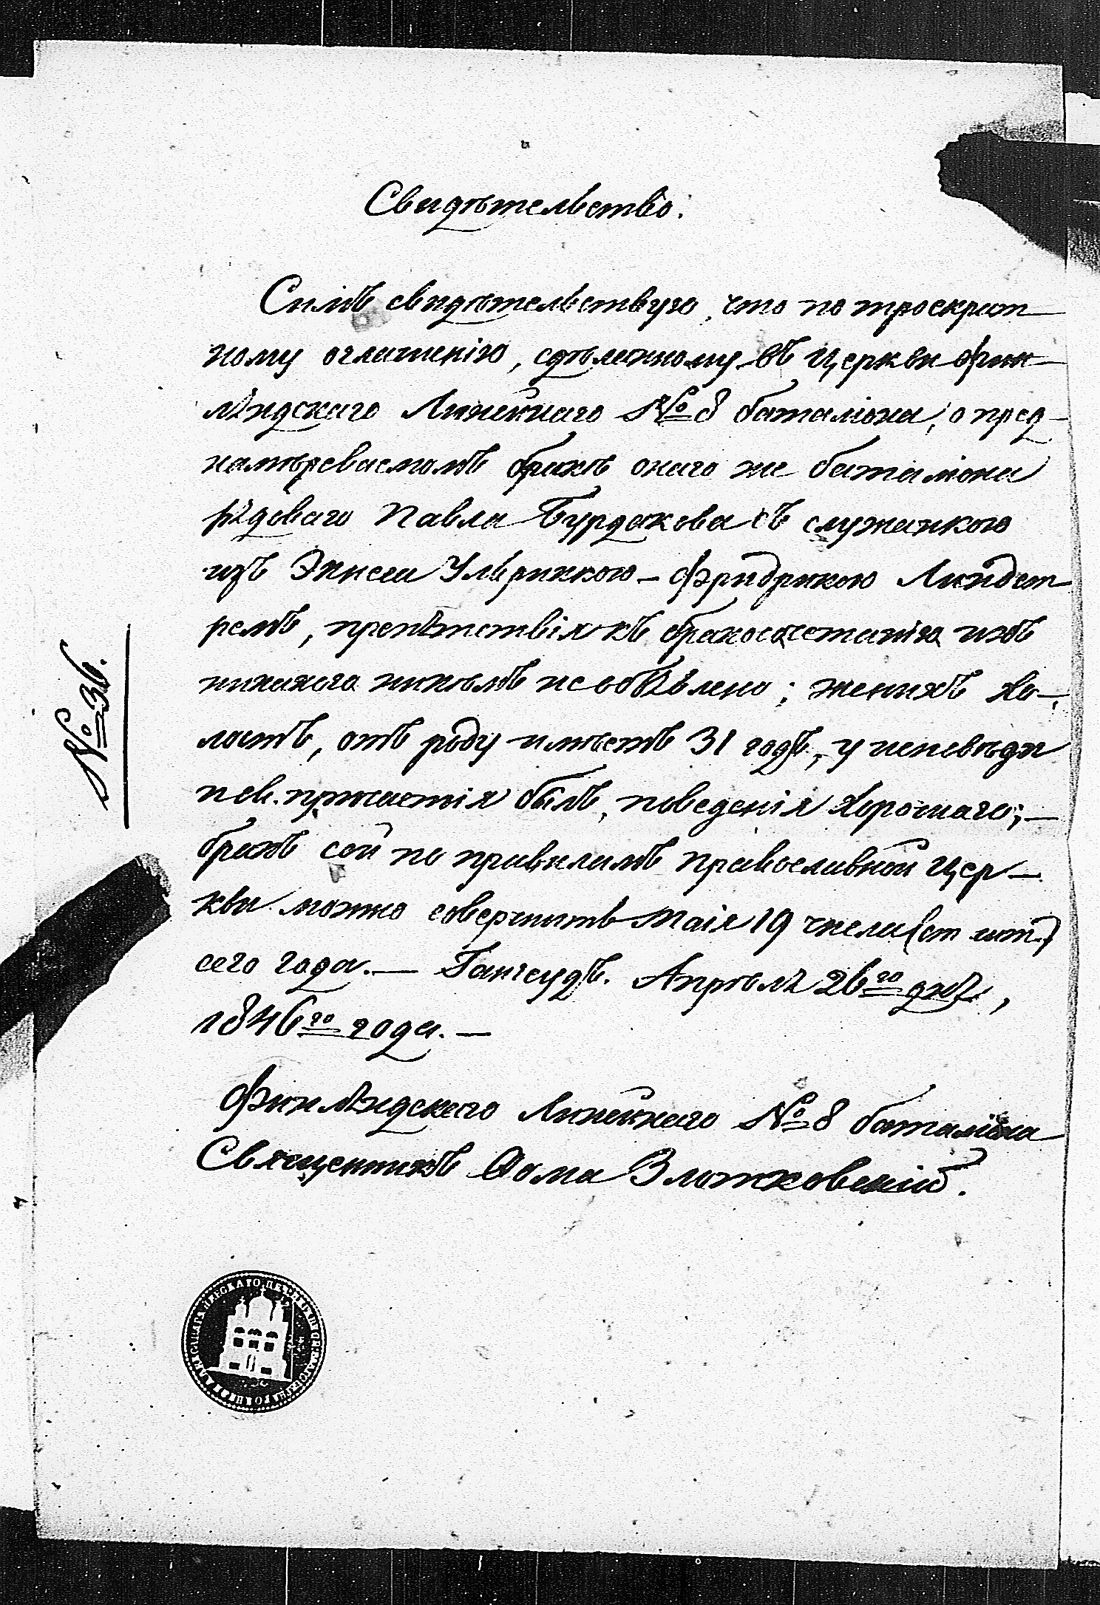 Свидѣтельство.
Симъ свидѣтельствую, что по троекрат-
ному оглашенію, сдѣланному въ Церкви Фин-
ляндскаго Линейнаго № 8 баталіона, о пред-
намѣреваемомъ бракѣ онаго же баталіона
рядоваго Павла Бурдакова съ служанкою
изъ Экнеса Ульриккою-Фридрикою Линдст-
ремъ, препятствія къ бракосочетанію ихъ
никакого никѣмъ не объявлено; женихъ хо-
лостъ, отъ роду имѣетъ 31 годъ, у исповѣди
и св. причастія былъ, поведенія хорошаго;—
бракъ сей по правиламъ православной Цер-
кви можно совершить Маія 19 числа (ст. шт.)
сего года.— Гангеудъ. Апрѣля 26го дня,
1846го года.—
Финляндскаго Линейнаго № 8 баталіона
Священникъ Ѳома Злотковскій.
№ 36.